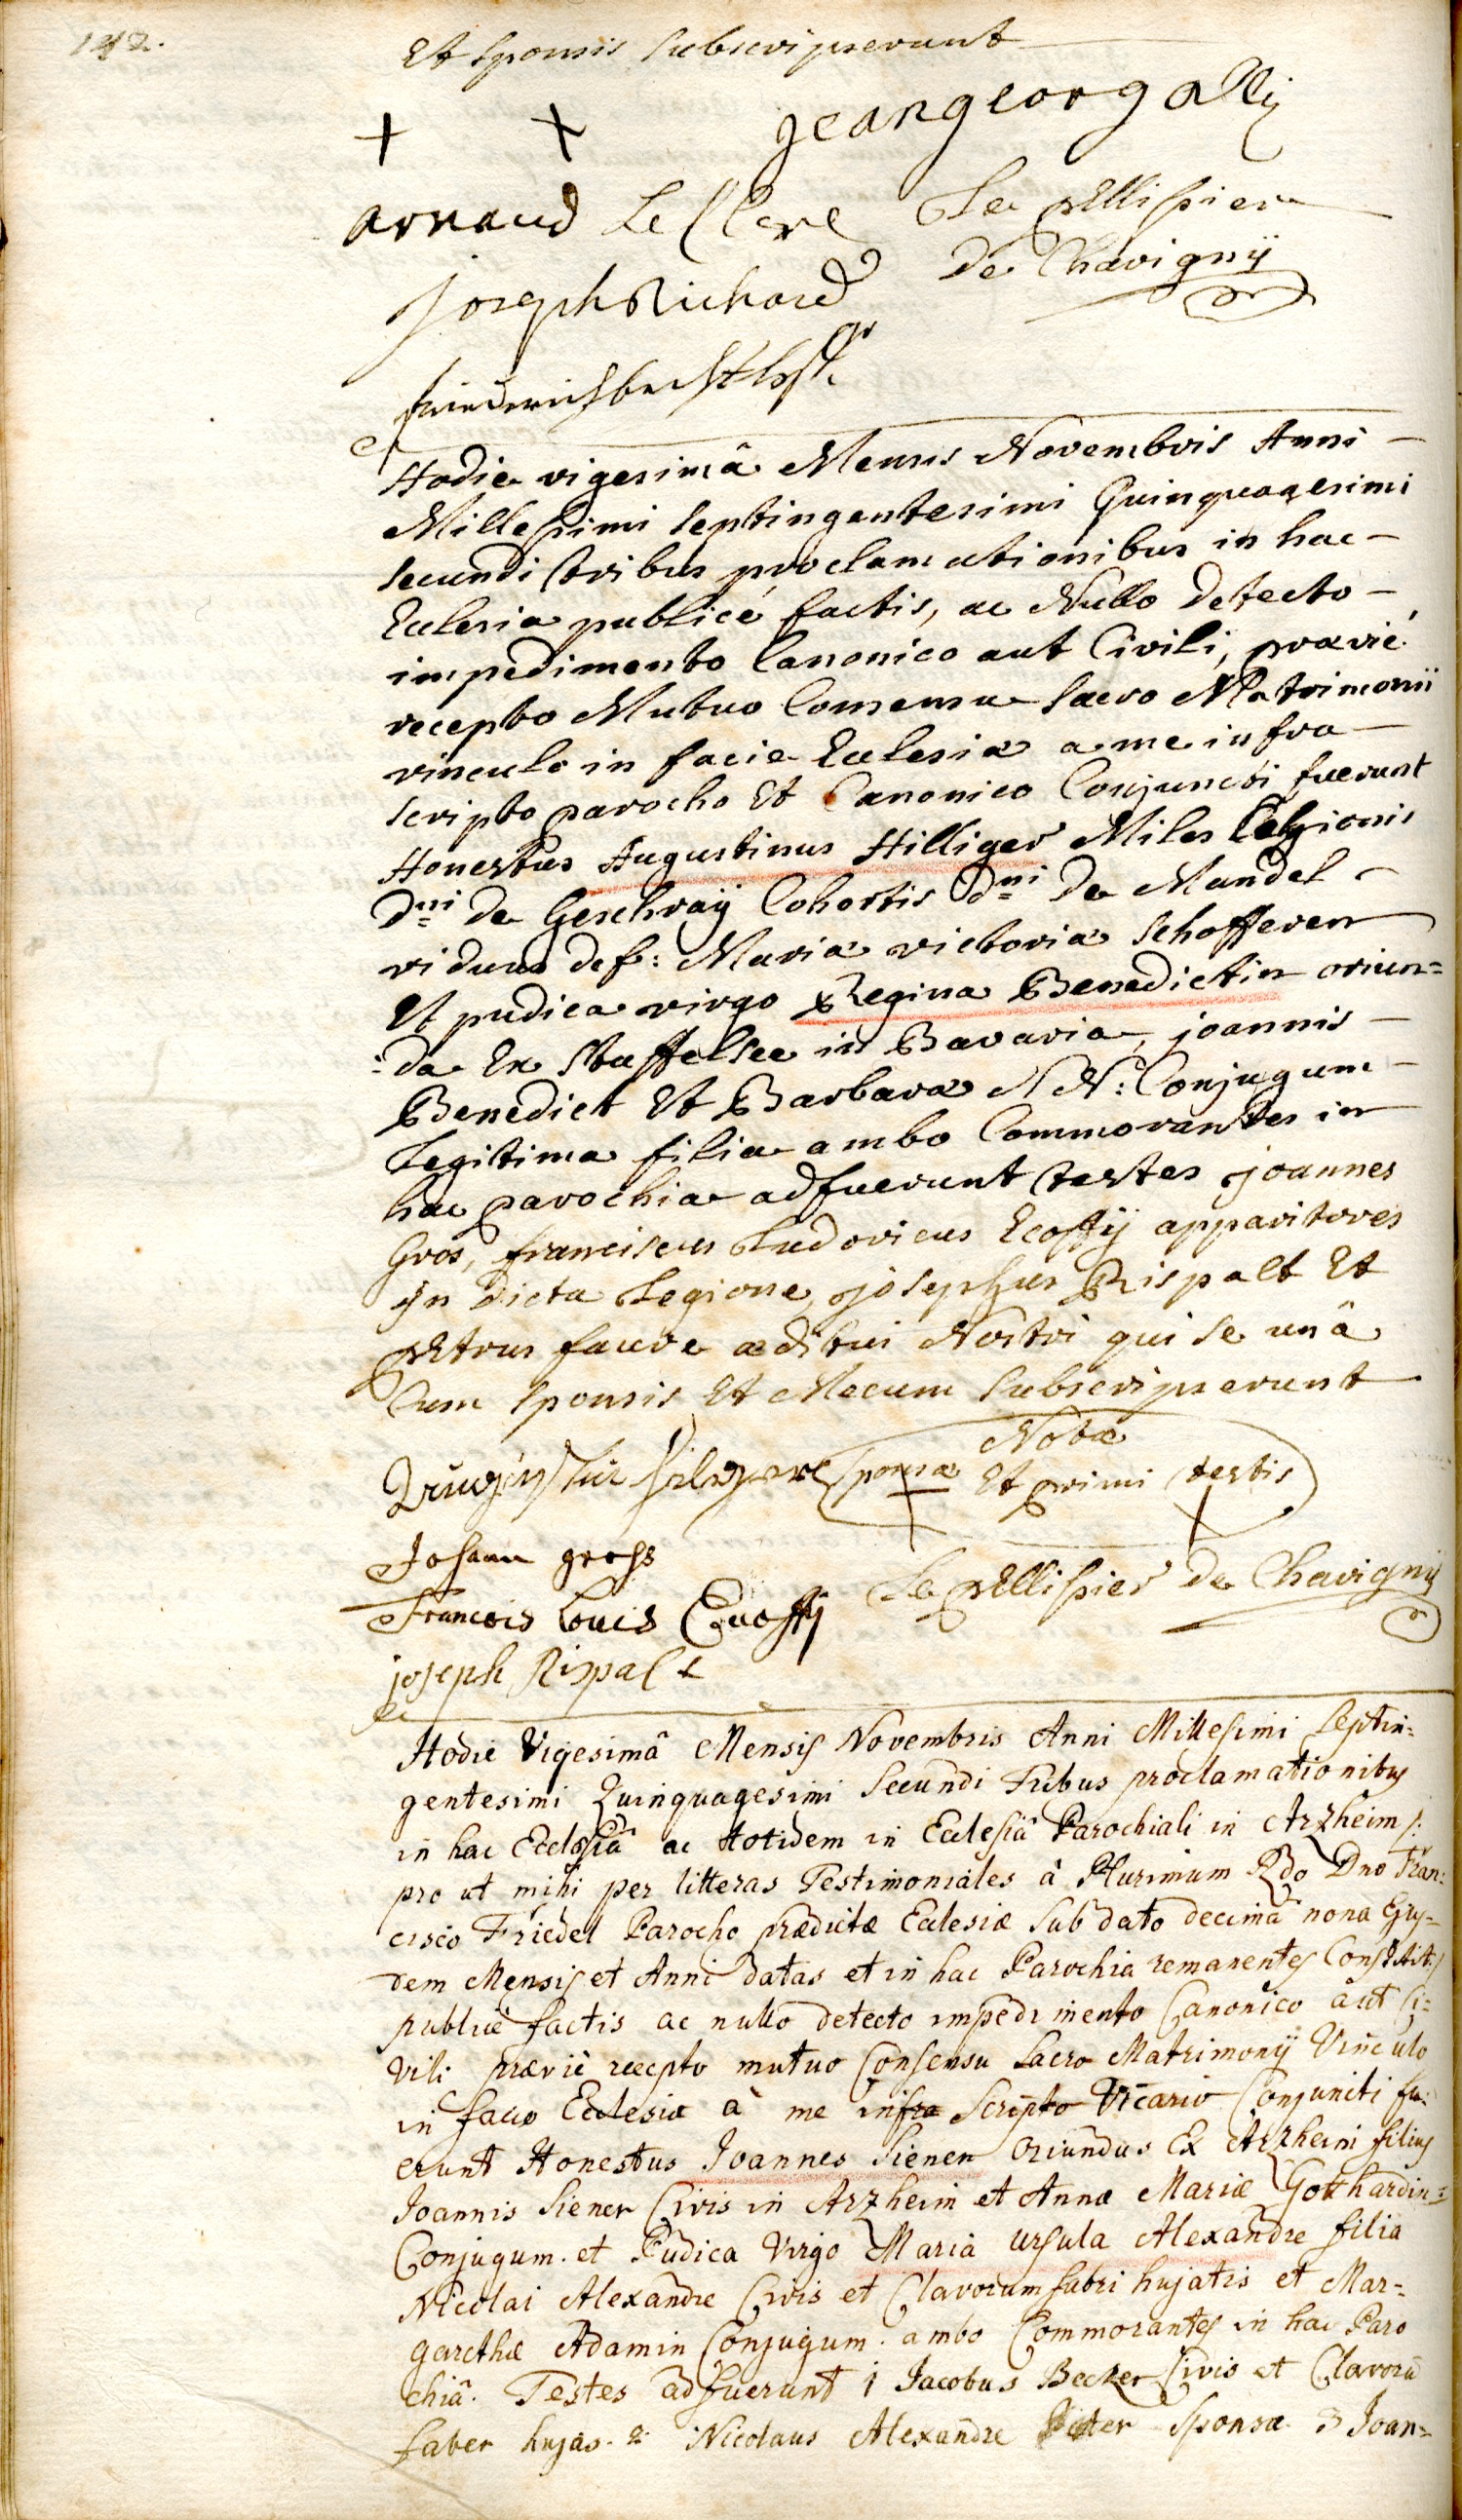 142.
Et sponsis subscripserunt
+ + jean georg alli
arnaud Le Clerc Le pellissier
de Chavignÿ
joseph Richard
Hodie vigesimâ Mensis Novembris Anni
Millesimi septingentesimi Quinquagesimi
secundi tribus proclamationibus in hac
Ecclesia publicé factis, ac Nullo detecto
impedimento Canonico aut Civili, prævié
recepto Mutuo Consensu sacro Matrimonii
vinculo in facie Ecclesiæ a me infra
scripto parocho Et Canonico Conjuncti fuerunt
Honestus Augustinus Hilliger Miles Legionis
Dni de Geschraÿ Cohortis Dni de Mandel
viduus def: Mariæ victoriæ Schofferen
Et pudica virgo Regina Benedictin oriun=
:da Ex Staffelsee in Bavaria, joannis
Benedict Et Barbaræ N N: Conjugum
Legitima filia ambo Commorantes in
hac parochia adfuerunt testes joannes
Gros, franciscus Ludovicus Ecoffÿ apparitores
in dicta Legione, josephus Rispalt Et
petrus faure æditui Nostri qui se unâ
Cum sponsis Et Mecum subscripserunt
Nota
sponsæ Et primi testis
Johann gross
Le pellissier de Chavignÿ
Francois Louis Ecoffÿ
joseph Rispalt
Hodie Vigesimâ Mensis Novembris Anni Millesimi Septin=
gentesimi Quinquagesimi Secundi Tribus proclamationibus
in hac Ecclesiâ ac totidem in Ecclesiâ Parochiali in Arzheim /:
pro ut mihi per litteras Testimoniales à Plurimum Rdo Dno Fran:
cisco Friedel Parocho prædictæ Ecclesiæ sub dato decima nona Ejus=
dem Mensis et Anni datas et in hac Parochia remanentes Constitit:/
publicè factis ac nullo detecto impedimento Canonico aut Ci=
vili prævie recepto mutuo Consensu Sacro Matrimonij Vinculo
in facie Ecclesiæ à me infra Scripto Vicario Conjuncti fu:
erunt Honestus Joannes Siener Oriundus Ex Arzheim filius
Joannis Siener Civis in Arzheim et Annæ Mariæ Gotthardin=
Conjugum. et Pudica Virgo Maria Ursula Alexandre filia
Nicolai Alexandre Civis et Clavorum fabri hujatis et Mar=
garethæ Adamin Conjugum. ambo Commorantes in hac Paro
chiâ. Testes adfuerunt 1 Jacobus Becker Civis et Clavorū
faber hujas. 2. Nicolaus Alexandre Pater Sponsæ 3 Joan=